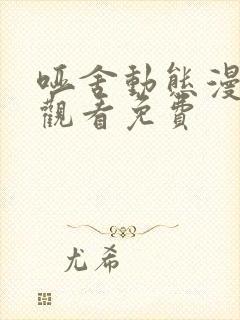 哑舍動態漫
觀看免費
尤希